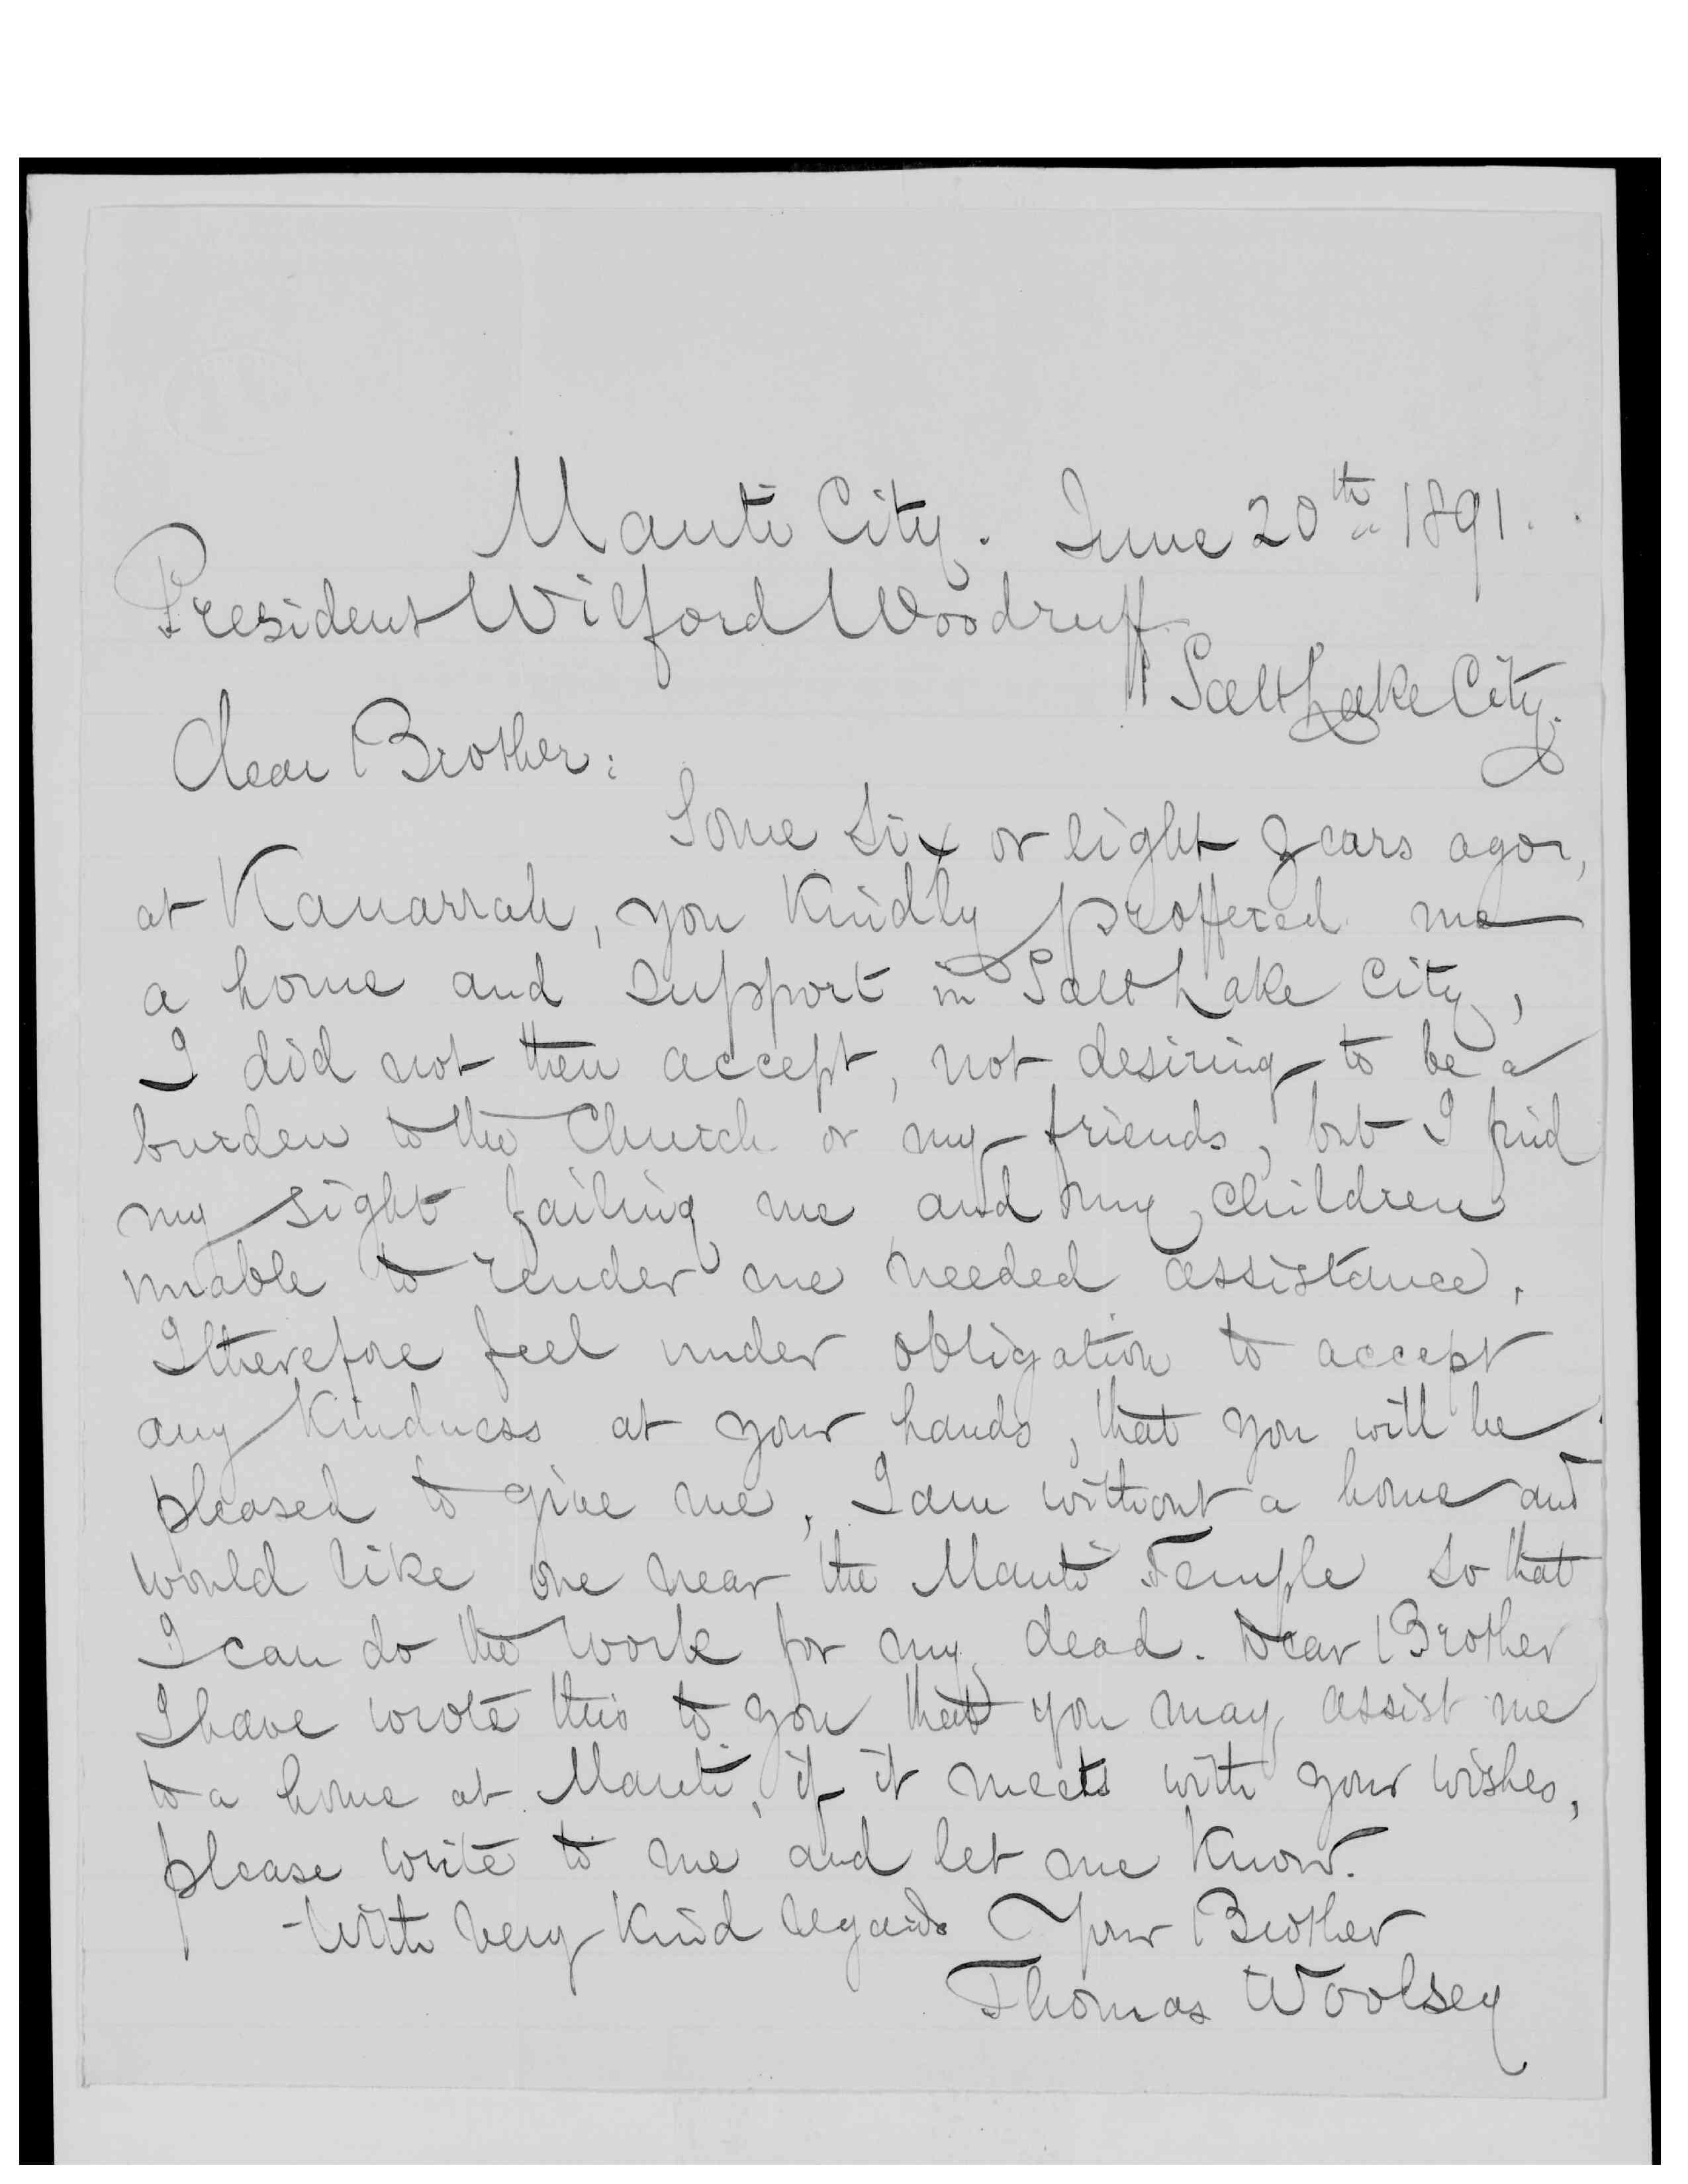 Manti City. June 20th 1891.
President Wilford Woodruff
Salt Lake City.
Dear Brother:
Some six or eight years agor,
at Kanarrah, you kindly proffered me
a home and support in Salt Lake City,
I did not then accept, not desiring to be a
burden to the Church or my friends, but I find
my sight failing me and my children
unable to render me needed assistance,
I therefore feel under obligation to accept
any kindness at your hands, that you will be
pleased to give me, I am without a home and
would like one near the Manti Temple so that
I can do the work for my dead. Dear Brother
I have wrote this to you that you may assist me
to a home at Manti, if it meets with your wishes,
please write to me and let me know.
With very kind regards Your Brother
Thomas Woolsey